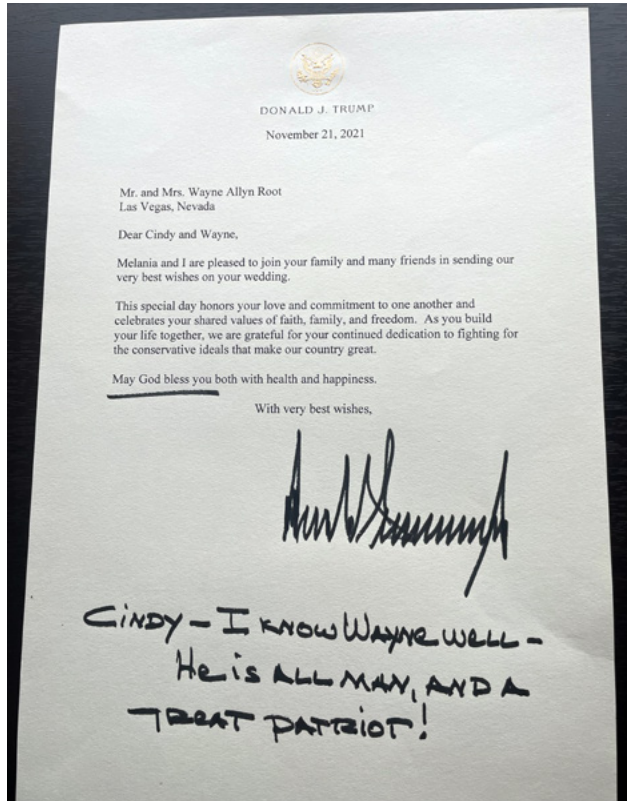 DONALD J. TRUMP
November 21, 2021
Mr. and Mrs. Wayne Allyn Root
Las Vegas, Nevada
Dear Cindy and Wayne,
Melania and I are pleased to join your family and many friends in sending our
very best wishes on your wedding.
This special day honors your love and commitment to one another and
celebrates your shared values of faith, family, and freedom. As you build
your life together, we are grateful for your continued dedication to fighting for
the conservative ideals that make our country great.
May God bless you both with health and happiness.
With very best wishes,
CiNDY – I KNOW WAYNE WELL –
He is ALL MAN, AND A
GREAT PATRiOT!